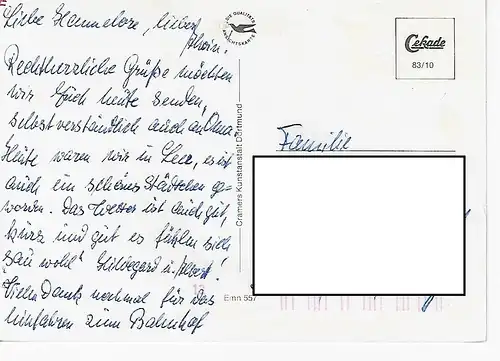 Liebe Hannelore, lieber
Rhein!
Recht herzliche Grüße möchten
wir Euch heute senden,
selbstverständlich auch an Oma.
Heute waren wir in Leer, es ist
auch ein schönes Städtchen ge-
worden. Das Wetter ist auch gut,
kurz und gut es fühlen sich
sau wohl" Hildegard u. Albert!
Vielen Dank nochmal für das
hinfahren zum Bahnhof
DIE QUALITÄTS
ANSICHTSKARTE
Cekade
83/10
Cramers Kunstanstalt Dortmund
Familie
Emn 557